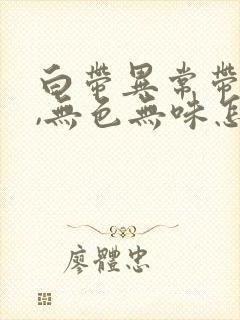 白帶異常帶
,無色無味怎
廖體忠